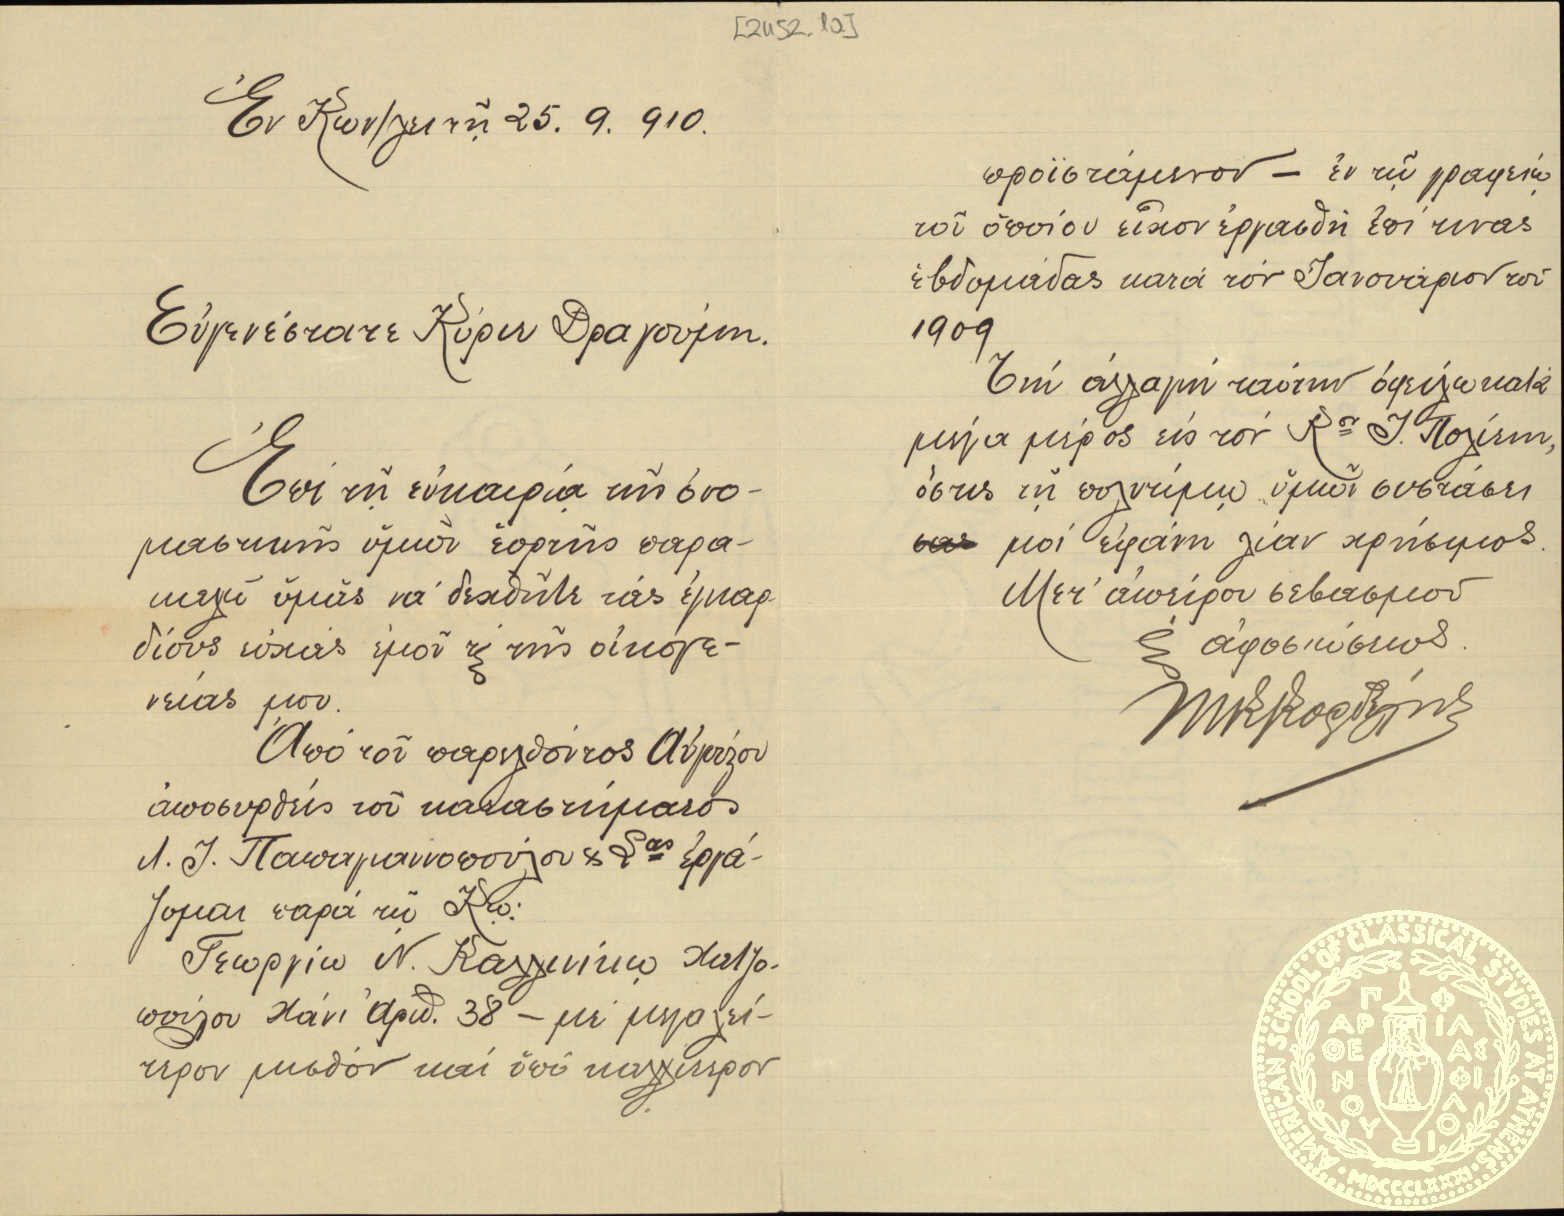 [2452.10]
Ἐν Κων/λει τῇ 25. 9. 910.
Εὐγενέστατε Κύριε Δραγούμη.
Ἐπὶ τῇ εὐκαιρίᾳ τῆς ὀνο-
μαστικῆς ὑμῶν ἑορτῆς παρα-
καλῶ ὑμᾶς νὰ δεχθῆτε τὰς ἐγκαρ-
δίους εὐχὰς ἐμοῦ κ τῆς οἰκογε-
νείας μου.
Ἀπὸ τοῦ παρελθόντος Αὐγούστου
ἀποσυρθεὶς τοῦ καταστήματος
Λ. Ι. Παπαγιαννοπούλου & Σας ἐργά-
ζομαι παρὰ τῷ Κῳ:
Γεωργίῳ Ν. Καλλινίκῳ Χατζο-
πούλου Χάνι Ἀριθ. 38 – μὲ μεγαλεί-
τερον μισθὸν καὶ ὑπὸ καλλίτερον
προϊστάμενον – ἐν τῷ γραφείῳ
τοῦ ὁποίου εἶχον ἐργασθῆ ἐπί τινας
ἑβδομάδας κατὰ τὸν Ἰανουάριον τοῦ
1909
Τὴν ἀλλαγὴν ταύτην ὀφείλω κατὰ
μέγα μέρος εἰς τὸν Κον Ι. Πολίτην,
ὅστις τῇ πολυτίμῳ ὑμῶν συστάσει
σας μοὶ ἐφάνη λίαν χρήσιμος.
Μετ' ἀπείρου σεβασμοῦ
κ ἀφοσιώσεως.
AMERICAN SCHOOL OF CLASSICAL STUDIES AT ATHENS
ΠΑΡΘΕΝΟΥ ΦΙΛΑΣ ΦΙΛΟΙ
MDCCCLXXXI